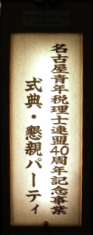 名古屋青年税理士連盟40周年記念事業
式典・懇親パーティ